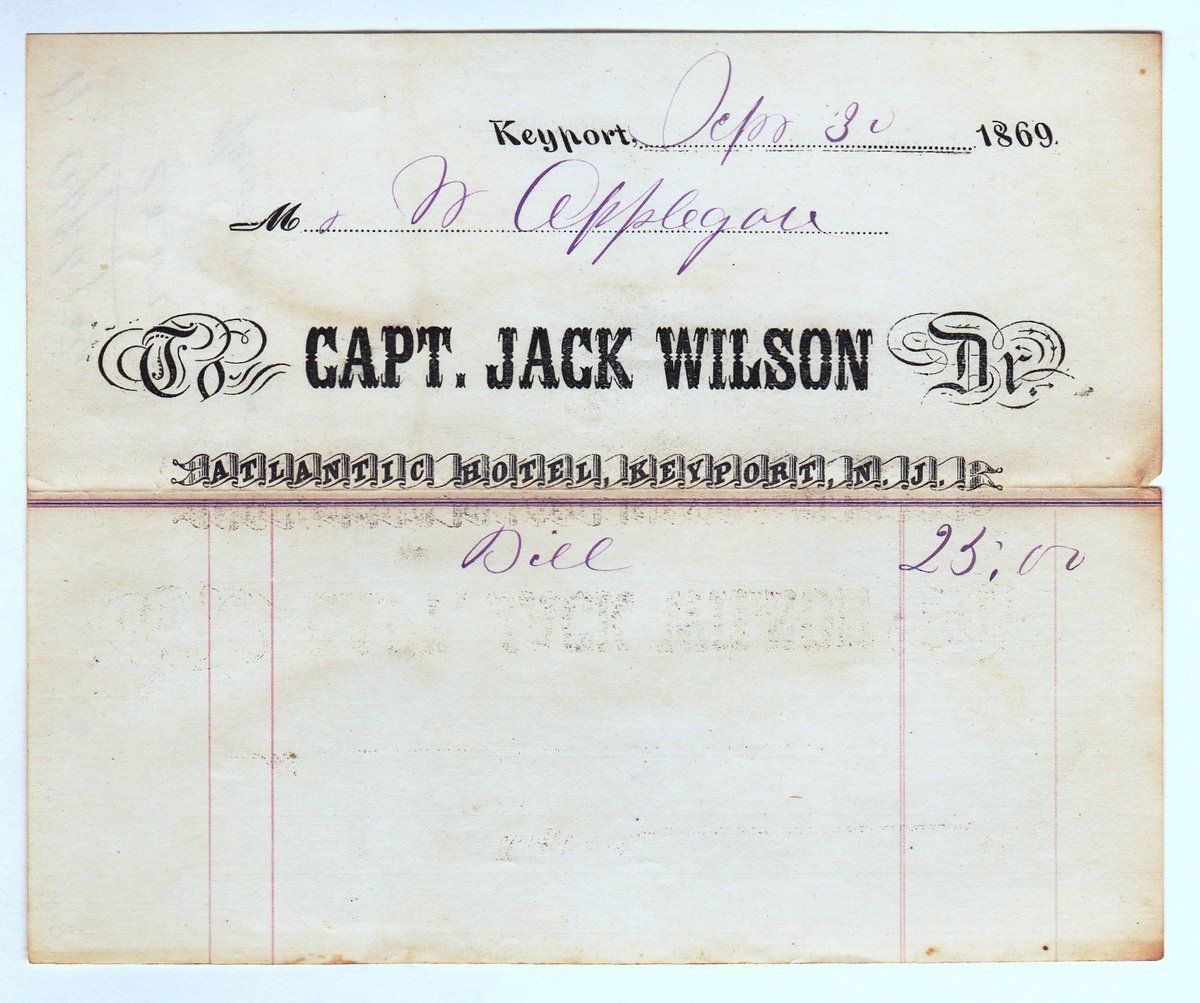 Keyport, Sep 30 1869.
Mr W Applegate
To CAPT. JACK WILSON Dr.
ATLANTIC HOTEL, KEYPORT, N. J.
Bill 25.00